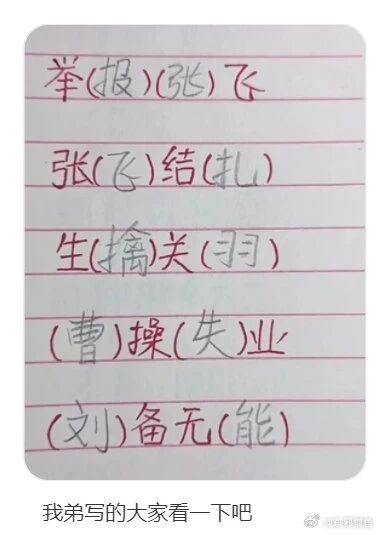 举(报)(张)飞
张(飞)结(扎)
生(擒)关(羽)
(曹)操(失)业
(刘)备无(能)
我弟写的大家看一下吧